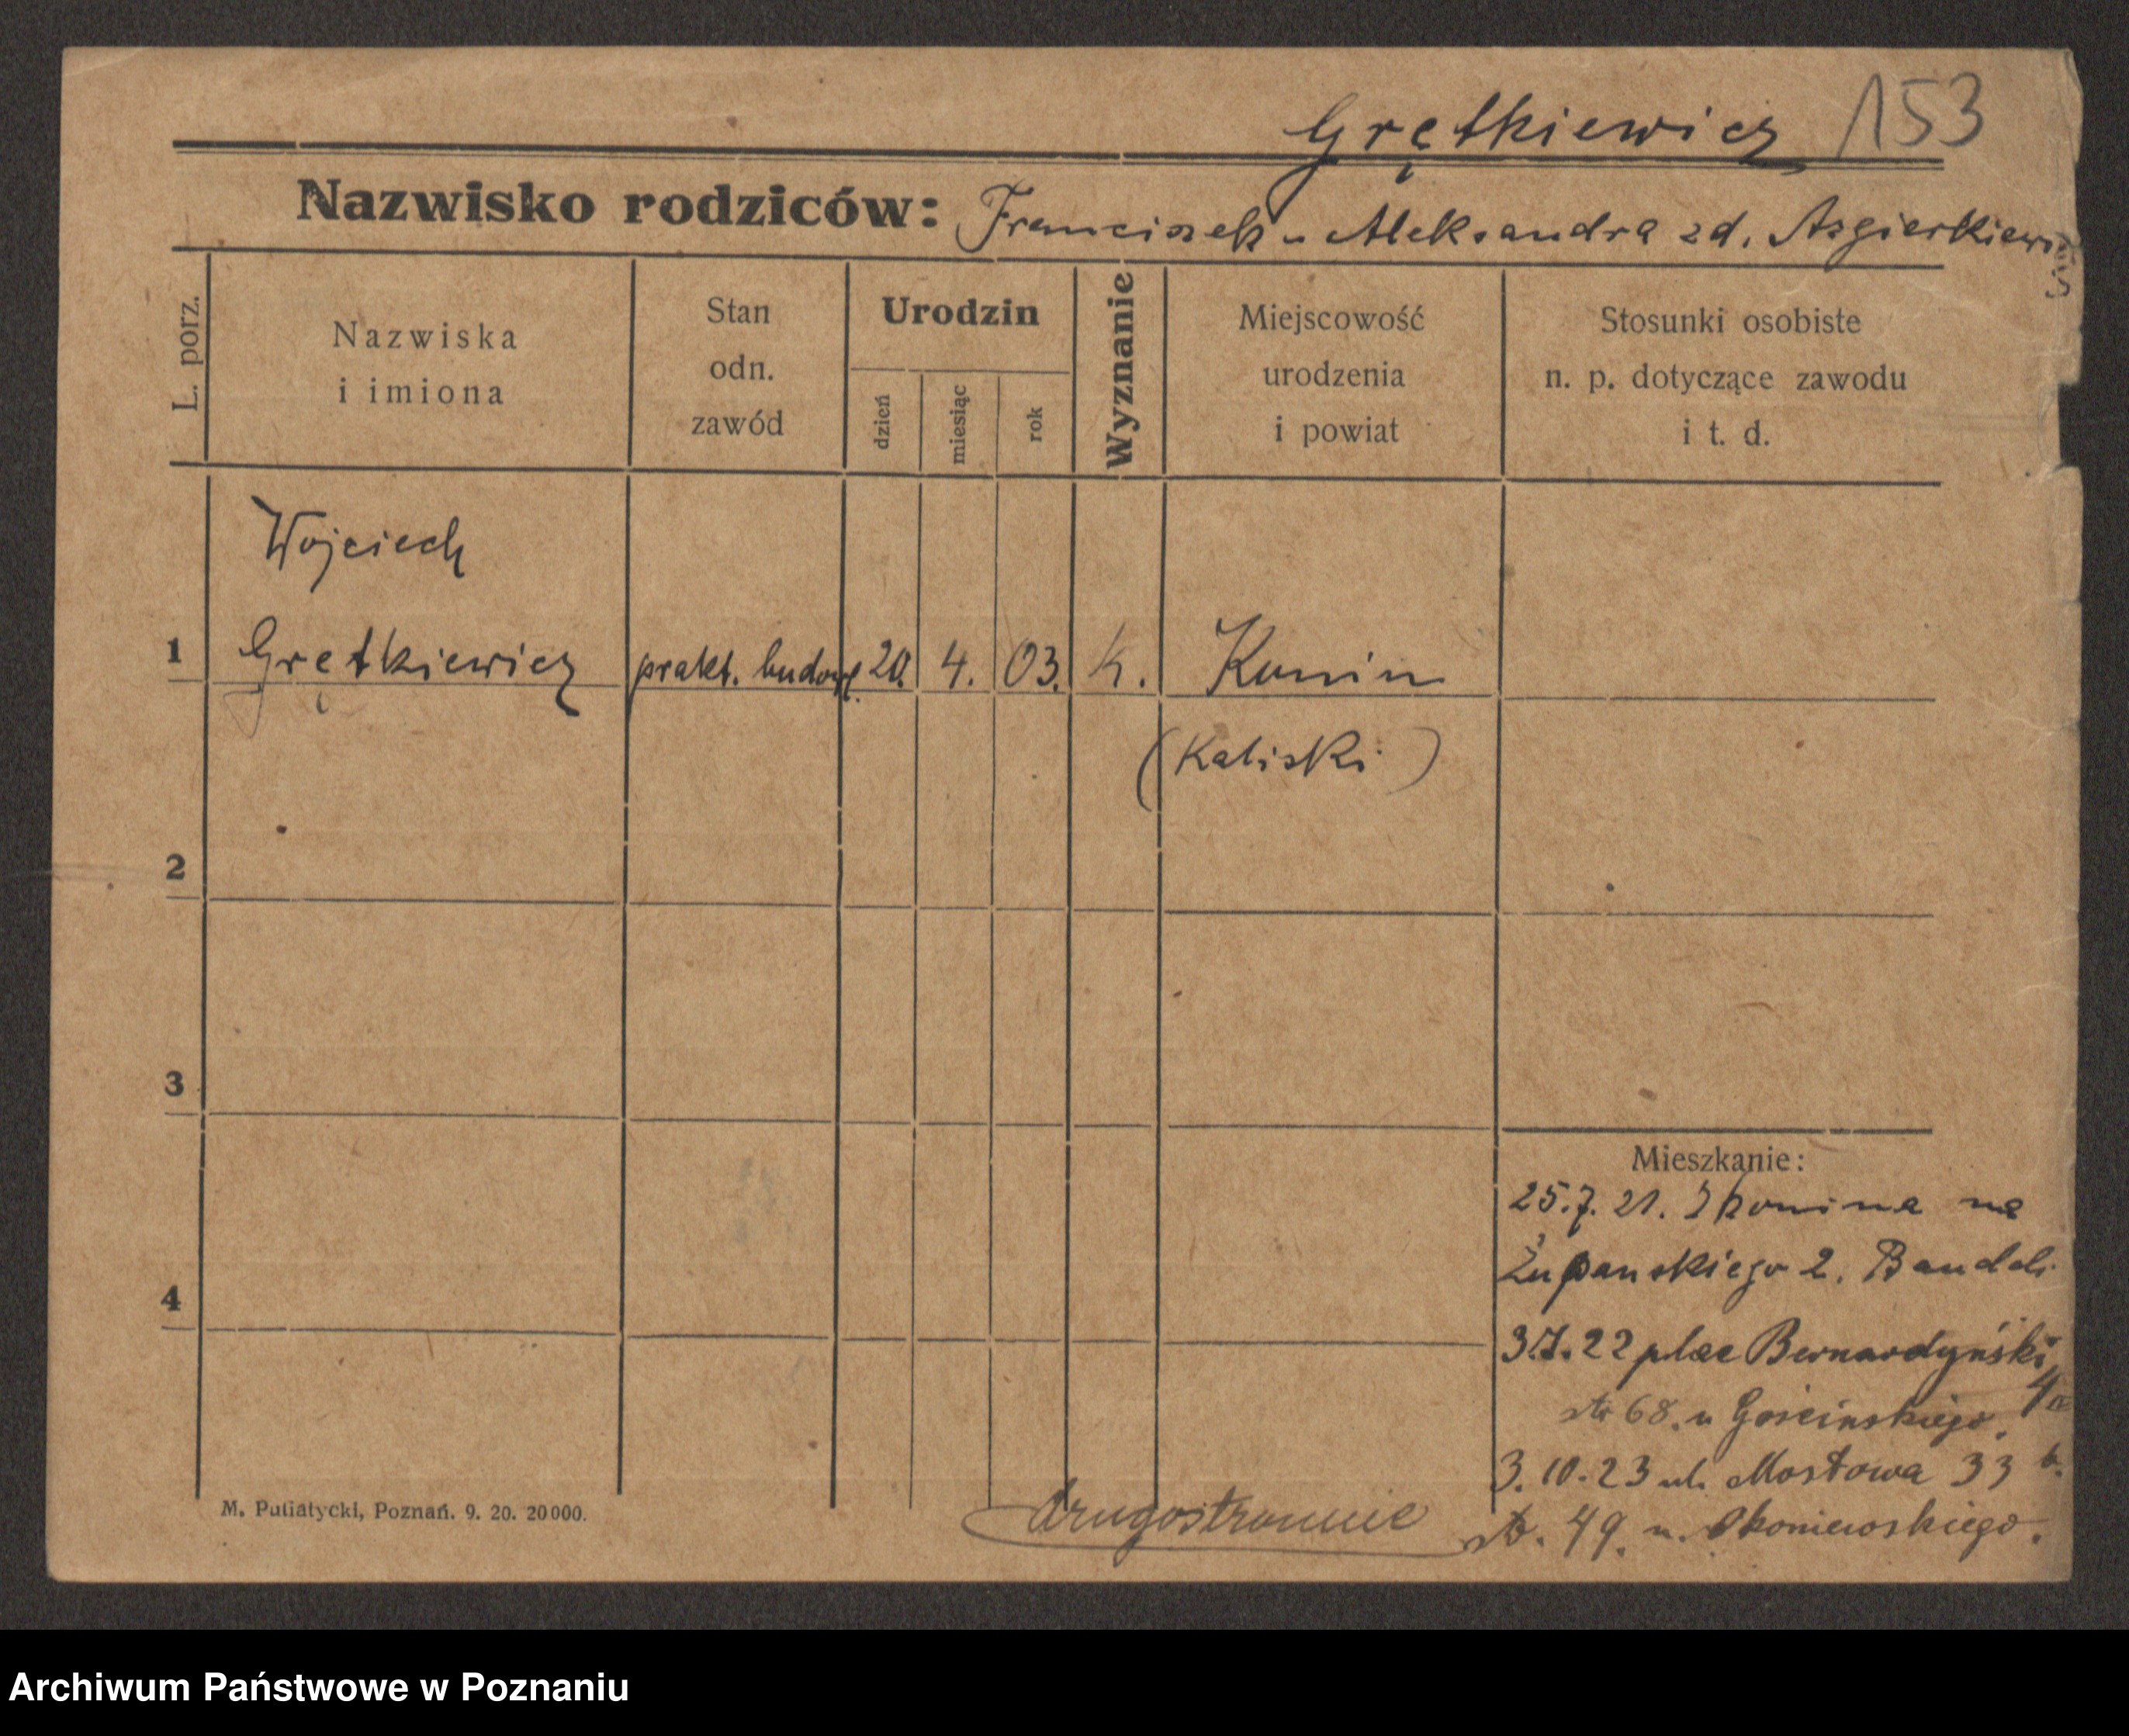 Grętkiewicz 153
Nazwisko rodziców: Franciszek u Aleksandra zd. Azgierkiewicz
L. porz.
Nazwiska
i imiona
Stan
odn.
zawód
Urodzin
dzień
miesiąc
rok
Wyznanie
Miejscowość
urodzenia
i powiat
Stosunki osobiste
n. p. dotyczące zawodu
i t. d.
Wojciech
1 Grętkiewicz prakt. budowl. 20. 4. 03. k. Konin
(Kaliski)
2
3
Mieszkanie:
25.7.21. z Konina na
Żupanskiego 2. Bandel.
4
3.7.22 plac Bernardyński
4a
str 68. u Gościnskiego.
3.10.23 ul. Mostowa 33
str. 49. u. Okoniewskiego.
M. Putiatycki, Poznań. 9. 20. 20000.
drugostronnie
Archiwum Państwowe w Poznaniu